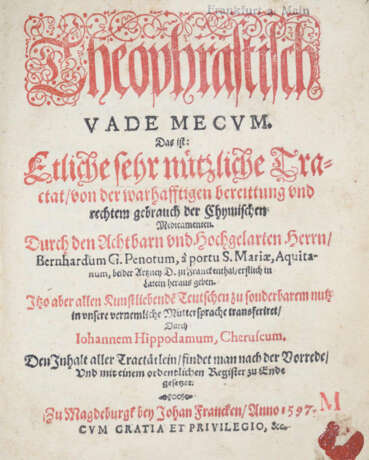 Frankfurt a. Main
Theophrastisch
VADE MECVM.
Das ist:
Etliche sehr nützliche Tra-
ctat/von der warhafftigen bereittung vnd
rechtem gebrauch der Chymischen
Medicamenten.
Durch den Achtbarn vnd Hochgelarten Herrn/
Bernhardum G. Penotum, à portu S. Mariæ, Aquita-
num, beider Artzney D. zu Franckenthal, erstlich in
Latein heraus geben.
Itzo aber allen Kunstliebende Teutschen zu sonderbarem nutz
in vnsere vernemliche Muttersprache transferiret/
Durch
Iohannem Hippodamum, Cheruscum.
Den Inhalt aller Tractätlein/findet man nach der Vorrede/
Vnd mit einem ordentlichen Register zu Ende
gesetzet.
Zu Magdeburgk bey Johan Francken/Anno 1597.
M
CVM GRATIA ET PRIVILEGIO, &c.